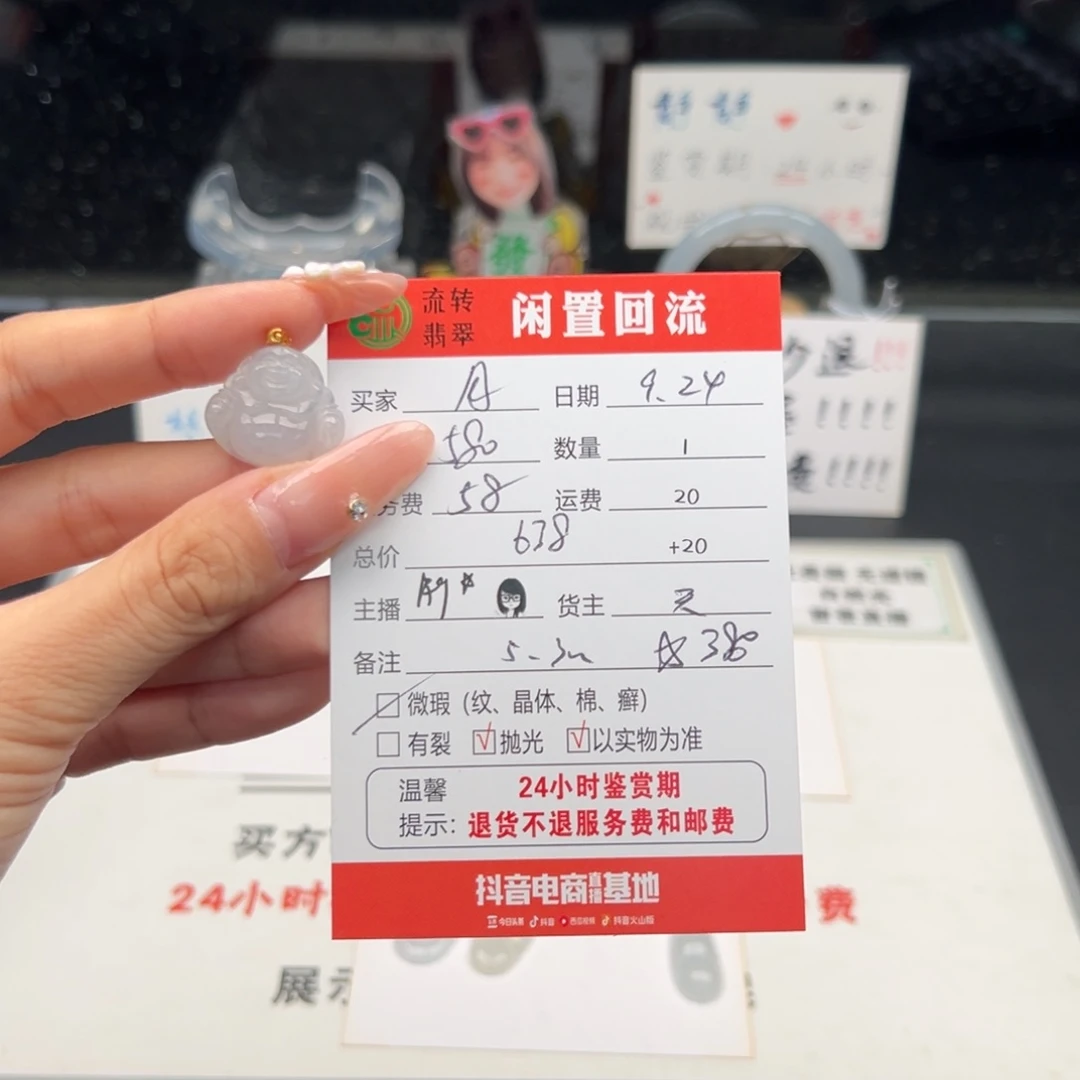 流转
翡翠
闲置回流
买家 A 日期 9.24
580 数量 1
务费 58 运费 20
总价 638 +20
主播 货主
备注 380
微瑕 (纹、晶体、棉、癣)
有裂 √抛光 √以实物为准
温馨 24小时鉴赏期
提示: 退货不退服务费和邮费
抖音电商直播基地
今日头条 抖音 西瓜视频 抖音火山版
發
少退
!!!!
!!!!
买方
24小时 费
展示